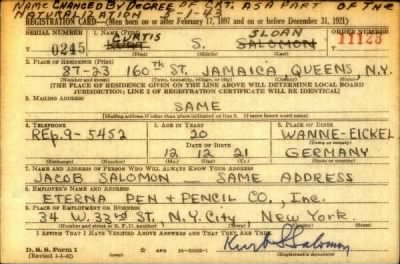 NAME CHANGED BY DECREE OF CRT. AS A PART OF THE
NATURALIZATION 5-7-43
REGISTRATION CARD—(Men born on or after February 17, 1897 and on or before December 31, 1921)
SERIAL NUMBER
1. NAME (Print)
ORDER NUMBER
0245
CURTIS
S.
SLOAN
SALOMON
11125
(First)
(Middle)
(Last)
2. PLACE OF RESIDENCE (Print)
87-23 160th ST. JAMAICA QUEENS N.Y.
(Number and street)
(Town, township, village, or city)
(County)
(State)
[THE PLACE OF RESIDENCE GIVEN ON THE LINE ABOVE WILL DETERMINE LOCAL BOARD
JURISDICTION; LINE 2 OF REGISTRATION CERTIFICATE WILL BE IDENTICAL]
3. MAILING ADDRESS
SAME
[Mailing address if other than place indicated on line 2. If same insert word same]
4. TELEPHONE
5. AGE IN YEARS
6. PLACE OF BIRTH
REp. 9-5452
20
WANNE-EICKEL
DATE OF BIRTH
(Town or county)
12 12 21
GERMANY
(Exchange)
(Number)
(Mo.)
(Day)
(Yr.)
(State or country)
7. NAME AND ADDRESS OF PERSON WHO WILL ALWAYS KNOW YOUR ADDRESS
JACOB SALOMON SAME ADDRESS
8. EMPLOYER'S NAME AND ADDRESS
ETERNA PEN + PENCIL CO., Inc.
9. PLACE OF EMPLOYMENT OR BUSINESS
34 W. 33rd ST. N.Y. City New York
(Number and street or R. F. D. number)
(Town)
(County)
(State)
I AFFIRM THAT I HAVE VERIFIED ABOVE ANSWERS AND THAT THEY ARE TRUE.
D. S. S. Form 1
(Revised 1-1-42)
Kurt S. Salomon